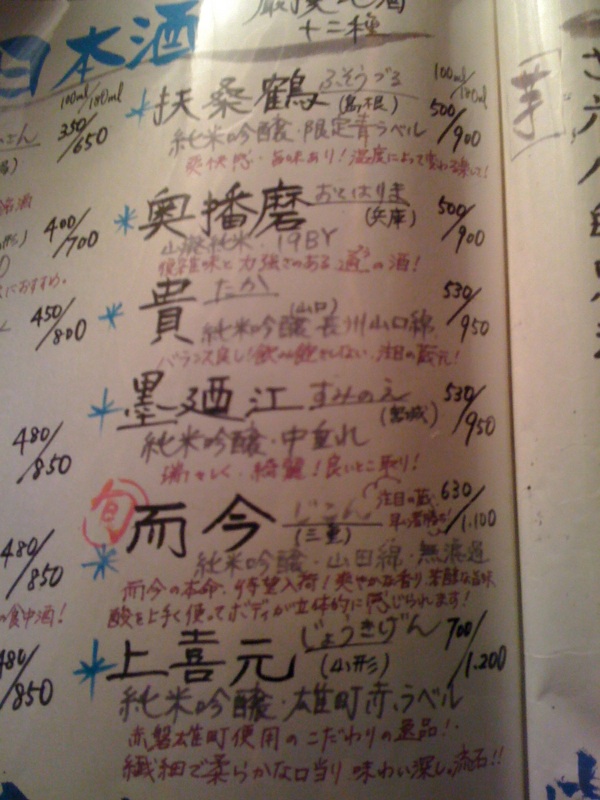 日本酒
十二種
100ml/180ml
350/650
400/700
におすすめ。
450/800
480/850
480/850
の食中酒!
480/850
100ml/180ml
*扶桑鶴 ふそうづる (島根) 500/900
純米吟醸・限定青ラベル
爽快感・旨味あり!温度によって変わる楽しさ!
*奥播磨 おくはりま (兵庫) 500/900
山廃純米 19BY
力強さのある通の酒!
*貴 たか (山口) 530/950
純米吟醸 長州山口錦
バランス良し!飲み飽きしない 注目の蔵元!
*墨廼江 すみのえ (宮城) 530/950
純米吟醸・中垂れ
瑞々しく、綺麗!良いとこ取り!
旬
*而今 じこん (三重) 630/1.100
注目の蔵 早い者勝ち!
純米吟醸・山田錦・無濾過
而今の本命、待望入荷!爽やかな香り 芳醇な旨味
酸を上手く使ってボディが立体的に感じられます!
*上喜元 じょうきげん (山形) 700/1.200
純米吟醸・雄町 赤ラベル
赤磐雄町使用のこだわりの逸品!
繊細で柔らかな口当り 味わい深し。流石!!
芋